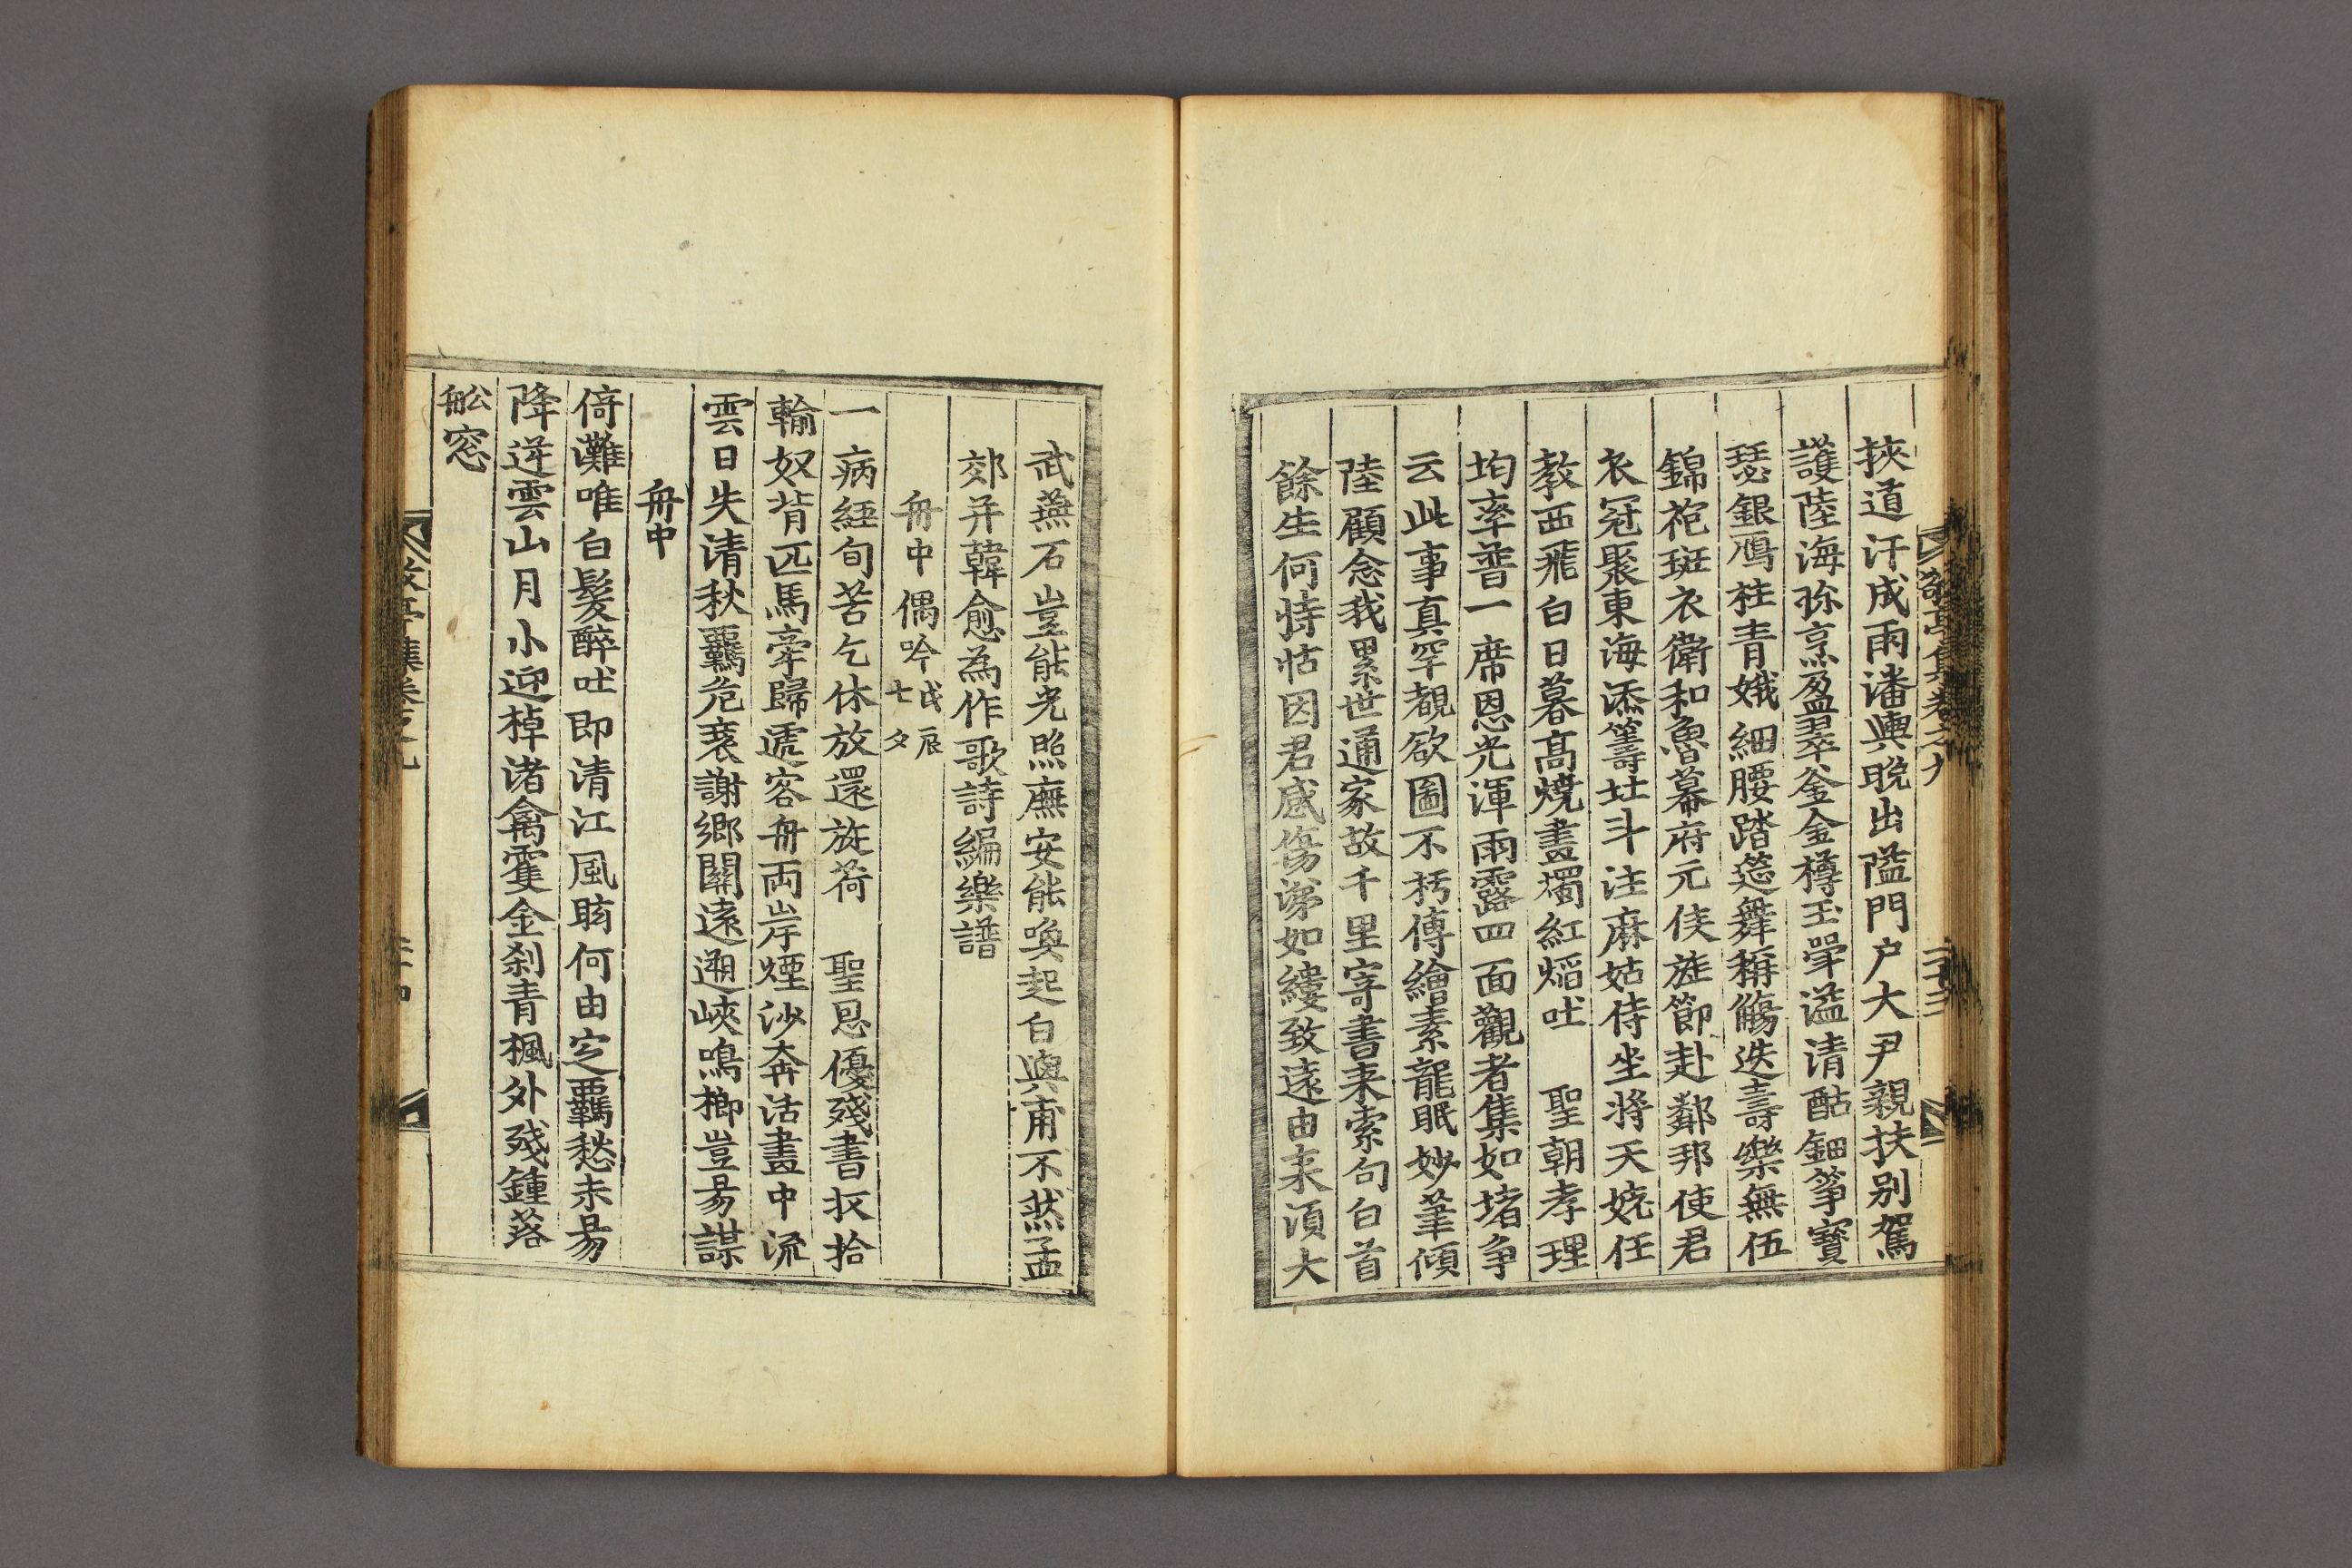 敬亭集卷之九
二十三
挾道汗成雨潘輿晩出隘門户大尹親扶別駕
護陸海珎烹盈翠釜金樽玉斝溢清酤鈿筝寶
瑟銀鴈柱青娥細腰踏筵舞稱觴迭壽樂無伍
錦袍斑衣衛和魯幕府元侯旌節赴鄰邦使君
衣冠聚東海添籌北斗注麻姑侍坐將天姥任
教西飛白日暮髙燒畫燭紅焰吐　聖朝孝理
均率普一席恩光渾雨露四面觀者集如堵争
云此事真罕覩欲圖不朽傳繪素龍眠妙筆傾
陸顧念我累世通家故千里寄書来索句白首
餘生何恃怙因君感傷涕如縷致遠由来須大
武燕石豈能光照廡安能喚起白與甫不然孟
郊并韓愈為作歌詩編樂譜
舟中偶吟 戊辰七夕
一病經旬苦乞休放還旋荷　聖恩優殘書収拾
輸奴背匹馬牽歸遞客舟両岸煙沙奔活畫中流
雲日失清秋羈危衰謝鄉關遠遡遡峽鳴榔豈易謀
舟中
倚灘唯白髮醉吐即清江風眩何由定羈愁未易
降逆雲山月小迎棹渚禽䨥金刹青楓外殘鍾落
舩窓